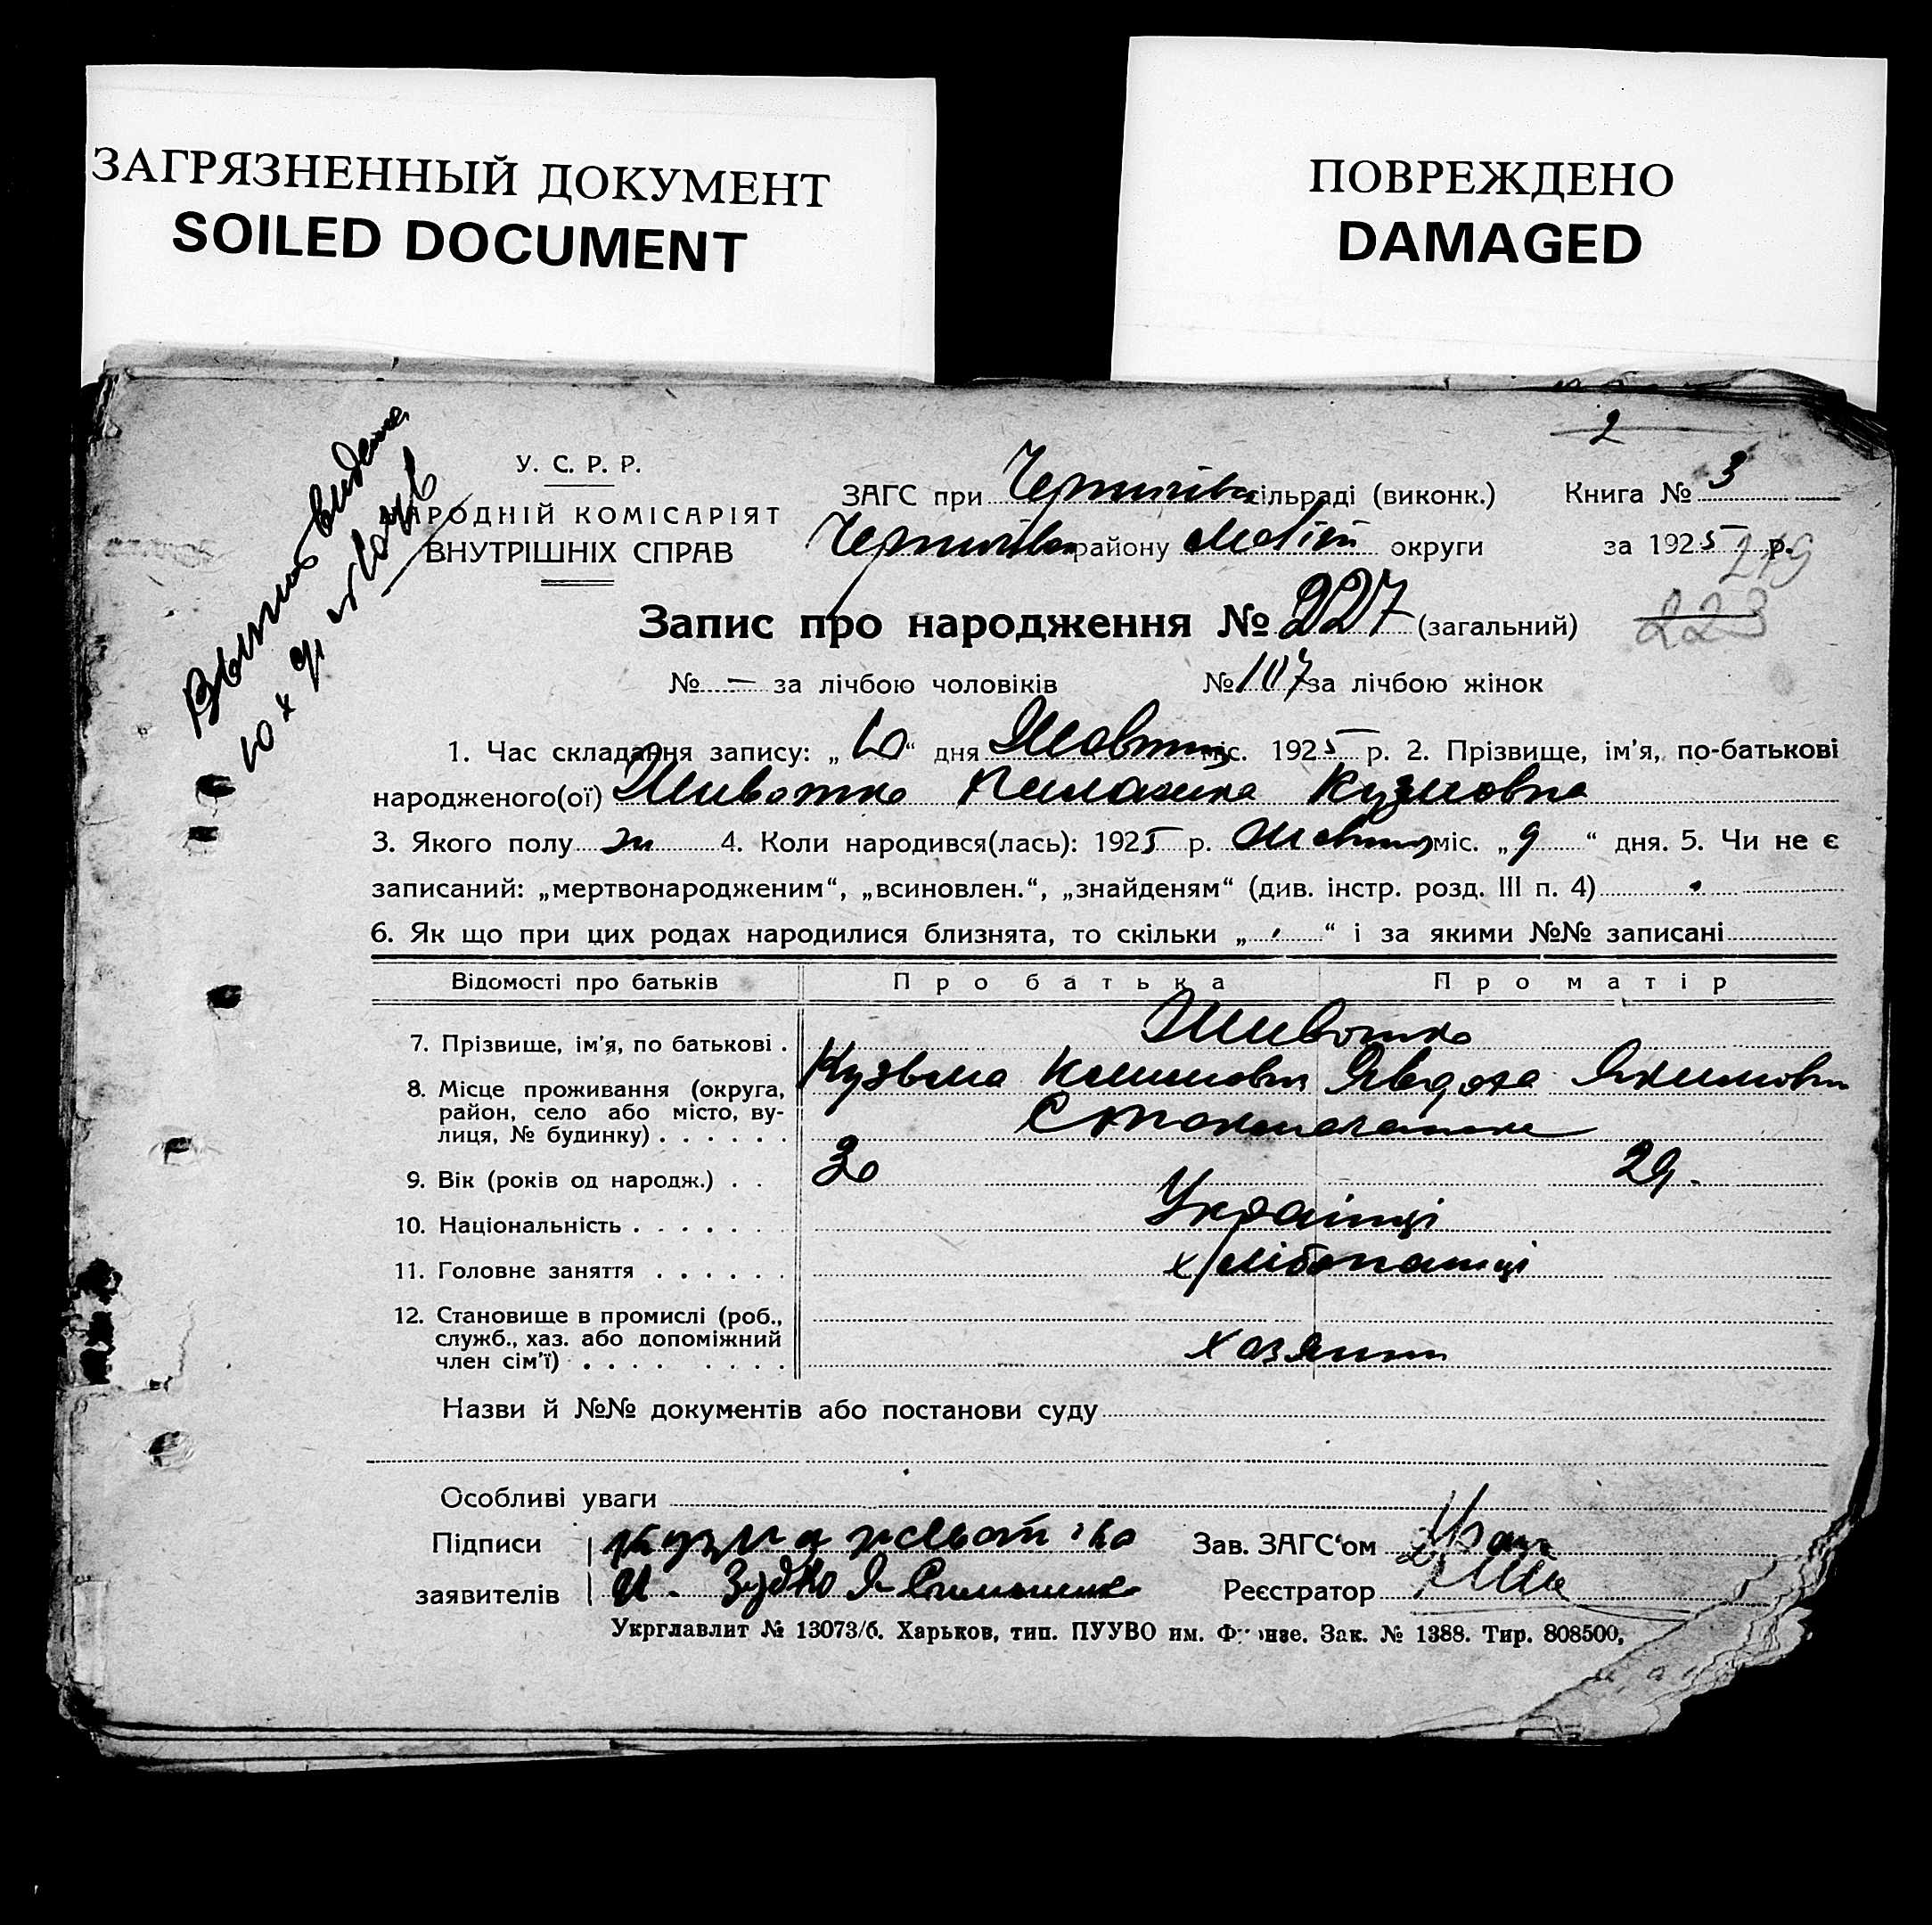 ЗАГРЯЗНЕННЫЙ ДОКУМЕНТ
SOILED DOCUMENT
ПОВРЕЖДЕНО
DAMAGED
2
У. С. Р. Р.
НАРОДНІЙ КОМІСАРІЯТ
ВНУТРІШНІХ СПРАВ
ЗАГС при сільраді (виконк.) Книга № 3
району округи за 1925 р.
219
Запис про народження № 227 (загальний) 223
№ — за лічбою чоловіків № 107 за лічбою жінок
1. Час складання запису: „10“ дня Жовтня міс. 1925 р. 2. Прізвище, ім'я, по-батькові
народженого(ої) Животко Пилажка Кузмовна
3. Якого полу ж 4. Коли народився(лась): 1925 р. Жовтня міс. „9“ дня. 5. Чи не є
записаний: „мертвонародженим“, „всиновлен.“, „знайденям“ (див. інстр. розд. III п. 4)
6. Як що при цих родах народилися близнята, то скільки „ “ і за якими №№ записані
Відомості про батьків Про батька Про матір
7. Прізвище, ім'я, по батькові . Животко
Кузьма Климович Явдоха Якимовн
8. Місце проживання (округа,
район, село або місто, ву-
лиця, № будинку) . . . . . .
9. Вік (років од народж.) . . 30 29.
10. Національність . . . . . . Українці
11. Головне заняття . . . . . . хлібопашці
12. Становище в промислі (роб.,
служб., хаз. або допоміжний
член сім'ї) . . . . . . . . хазяини
Назви й №№ документів або постанови суду
Особливі уваги
Підписи кузма жывотко Зав. ЗАГС'ом
заявителів И. Зубко Реєстратор
Укрглавлит № 13073/б. Харьков, тип. ПУУВО им. Фрунзе. Зак. № 1388. Тир. 808500,